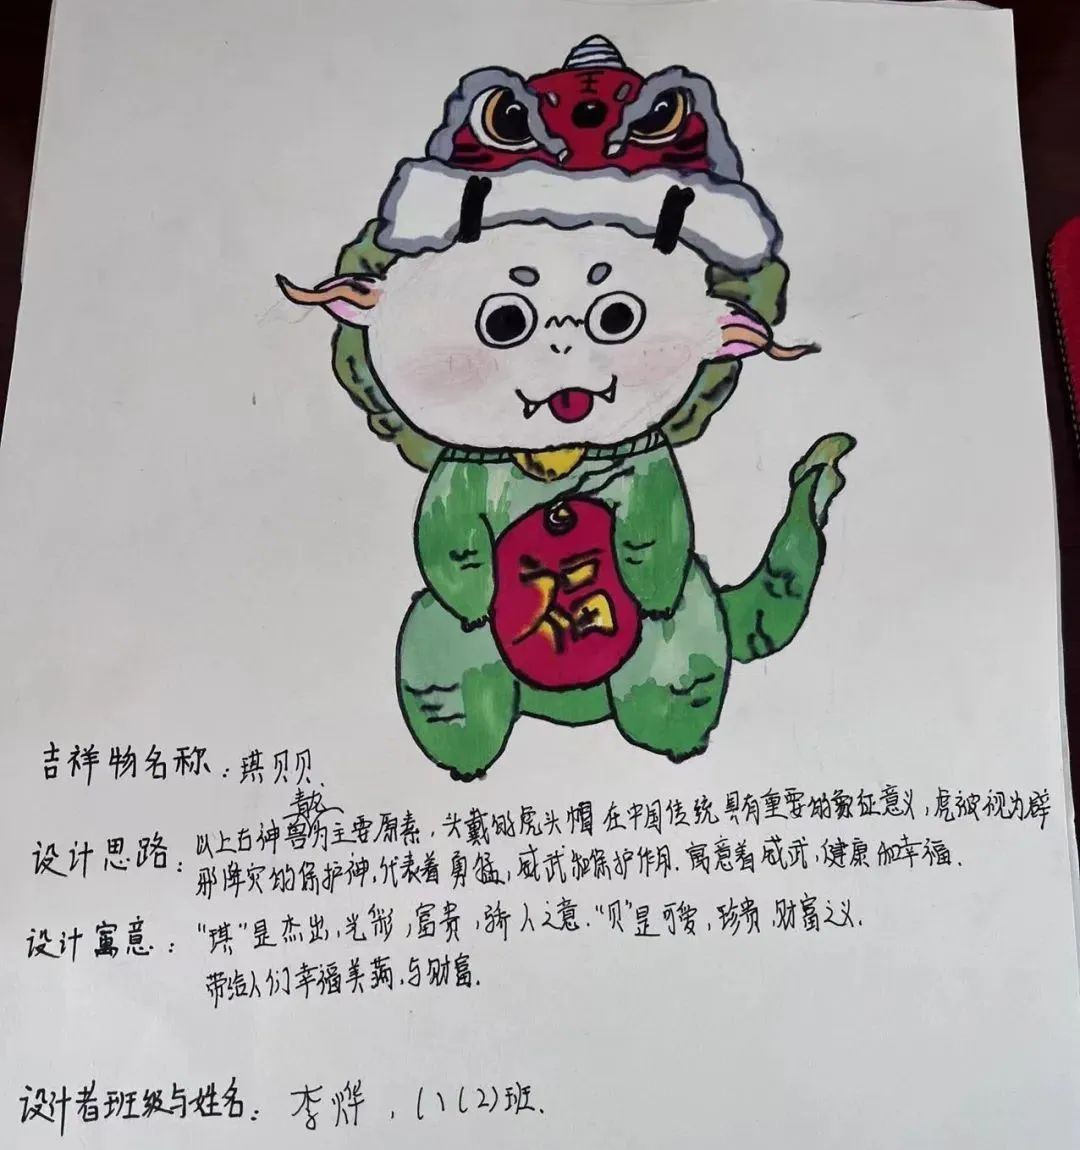 王
福
吉祥物名称：琪贝贝.
设计思路：以上古神兽青龙为主要原素，头戴的虎头帽在中国传统具有重要的象征意义，虎被视为辟
邪阵灾的保护神，代表着勇猛，威武和保护作用.寓意着威武，健康和幸福.
设计寓意："琪"是杰出，光彩，富贵，骄人之意."贝"是可爱，珍贵，财富之义.
带给人们幸福美满，与财富.
设计者班级与姓名：李烨，八(2)班.